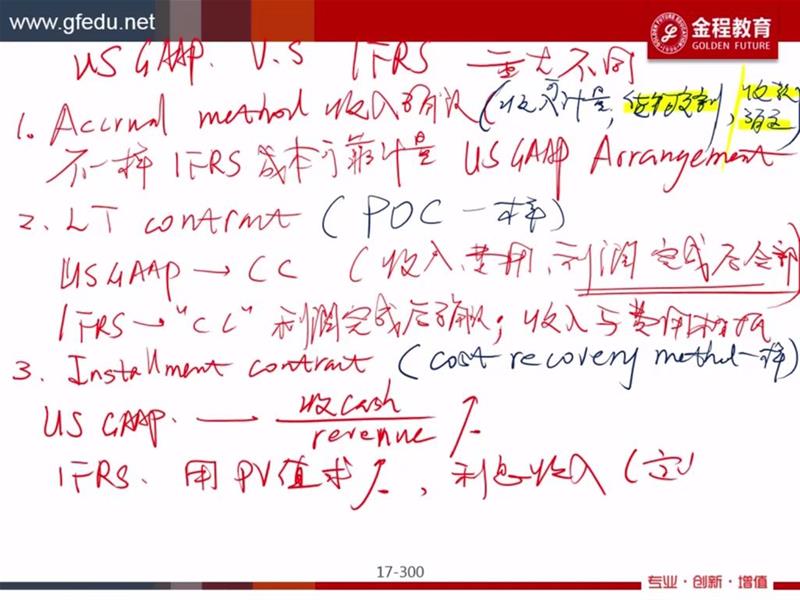 www.gfedu.net
金程教育
GOLDEN FUTURE
US GAAP. V.S IFRS 重大不同
1. Accrual method 收入确认 (收入可计量, 收款确定)
不一样 IFRS 成本可靠计量 US GAAP Arrangement
2. LT contract (POC 一样)
US GAAP → CC (收入、费用、利润完成后全部)
IFRS → "CC" 利润完成后确认; 收入与费用
3. Installment contract (cost recovery method 一样)
US GAAP. 收cash
revenue
IFRS. 用PV值求, 利息收入 (
17-300
专业·创新·增值